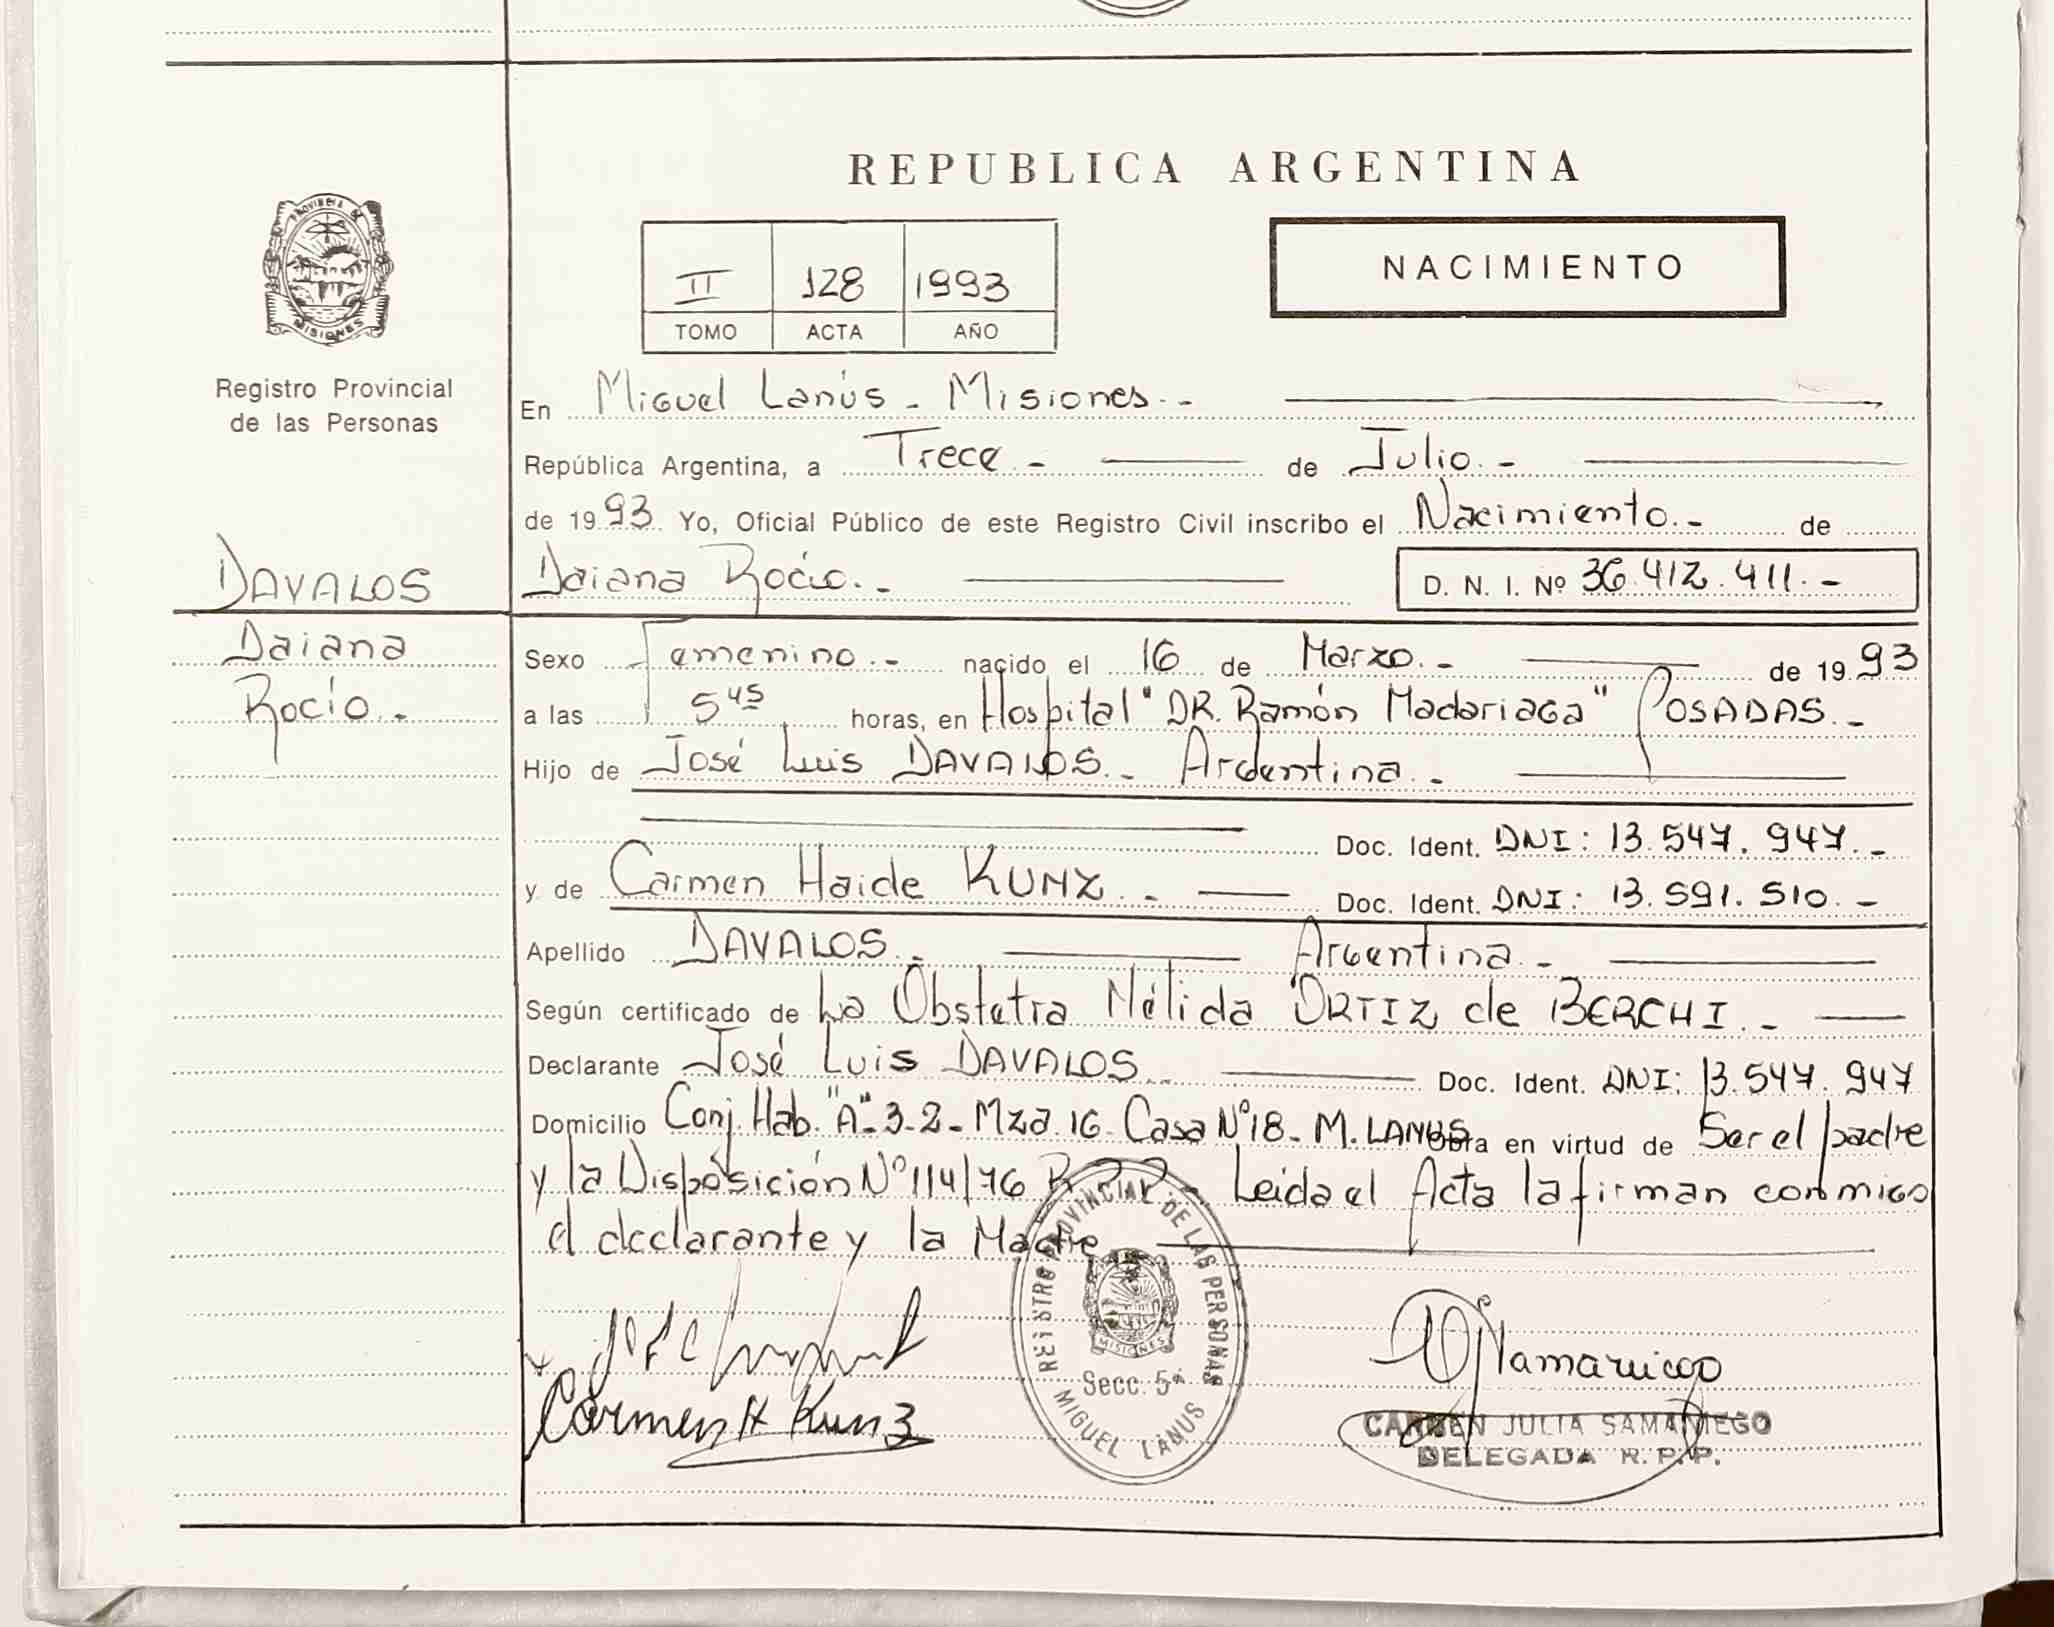 REPUBLICA ARGENTINA
PROVINCIA DE
MISIONES
Registro Provincial
de las Personas
II 128 1993
TOMO ACTA AÑO
NACIMIENTO
En Miguel Lanús - Misiones.-
República Argentina, a Trece.- de Julio.-
de 1993 Yo, Oficial Público de este Registro Civil inscribo el Nacimiento.- de
DAVALOS
Daiana Rocío.- D. N. I. Nº 36.412.411.-
Daiana
Rocío.-
Sexo Femenino.- nacido el 16 de Marzo.- de 1993
a las 5 45 horas, en Hospital "DR. Ramón Madariaga" POSADAS.-
Hijo de José Luis DAVALOS.- Argentina.-
Doc. Ident. DNI: 13.547.947.-
y de Carmen Haide KUNZ.- Doc. Ident. DNI: 13.591.510.-
Apellido DAVALOS.- Argentina.-
Según certificado de La Obstetra Nélida ORTIZ de BERCHI.-
Declarante José Luis DAVALOS.- Doc. Ident. DNI: 13.547.947
Domicilio Conj. Hab. "A"-3-2- Mza.16- Casa Nº18- M. LANUS Obra en virtud de Ser el padre
y la Disposición Nº114/76 R.P.P.- Leida el Acta la firman conmigo
el declarante y la Madre
Carmen H Kunz
REGISTRO PROVINCIAL DE LAS PERSONAS
MISIONES
Secc. 5ª
MIGUEL LANUS
CARMEN JULIA SAMANIEGO
DELEGADA R. P. P.